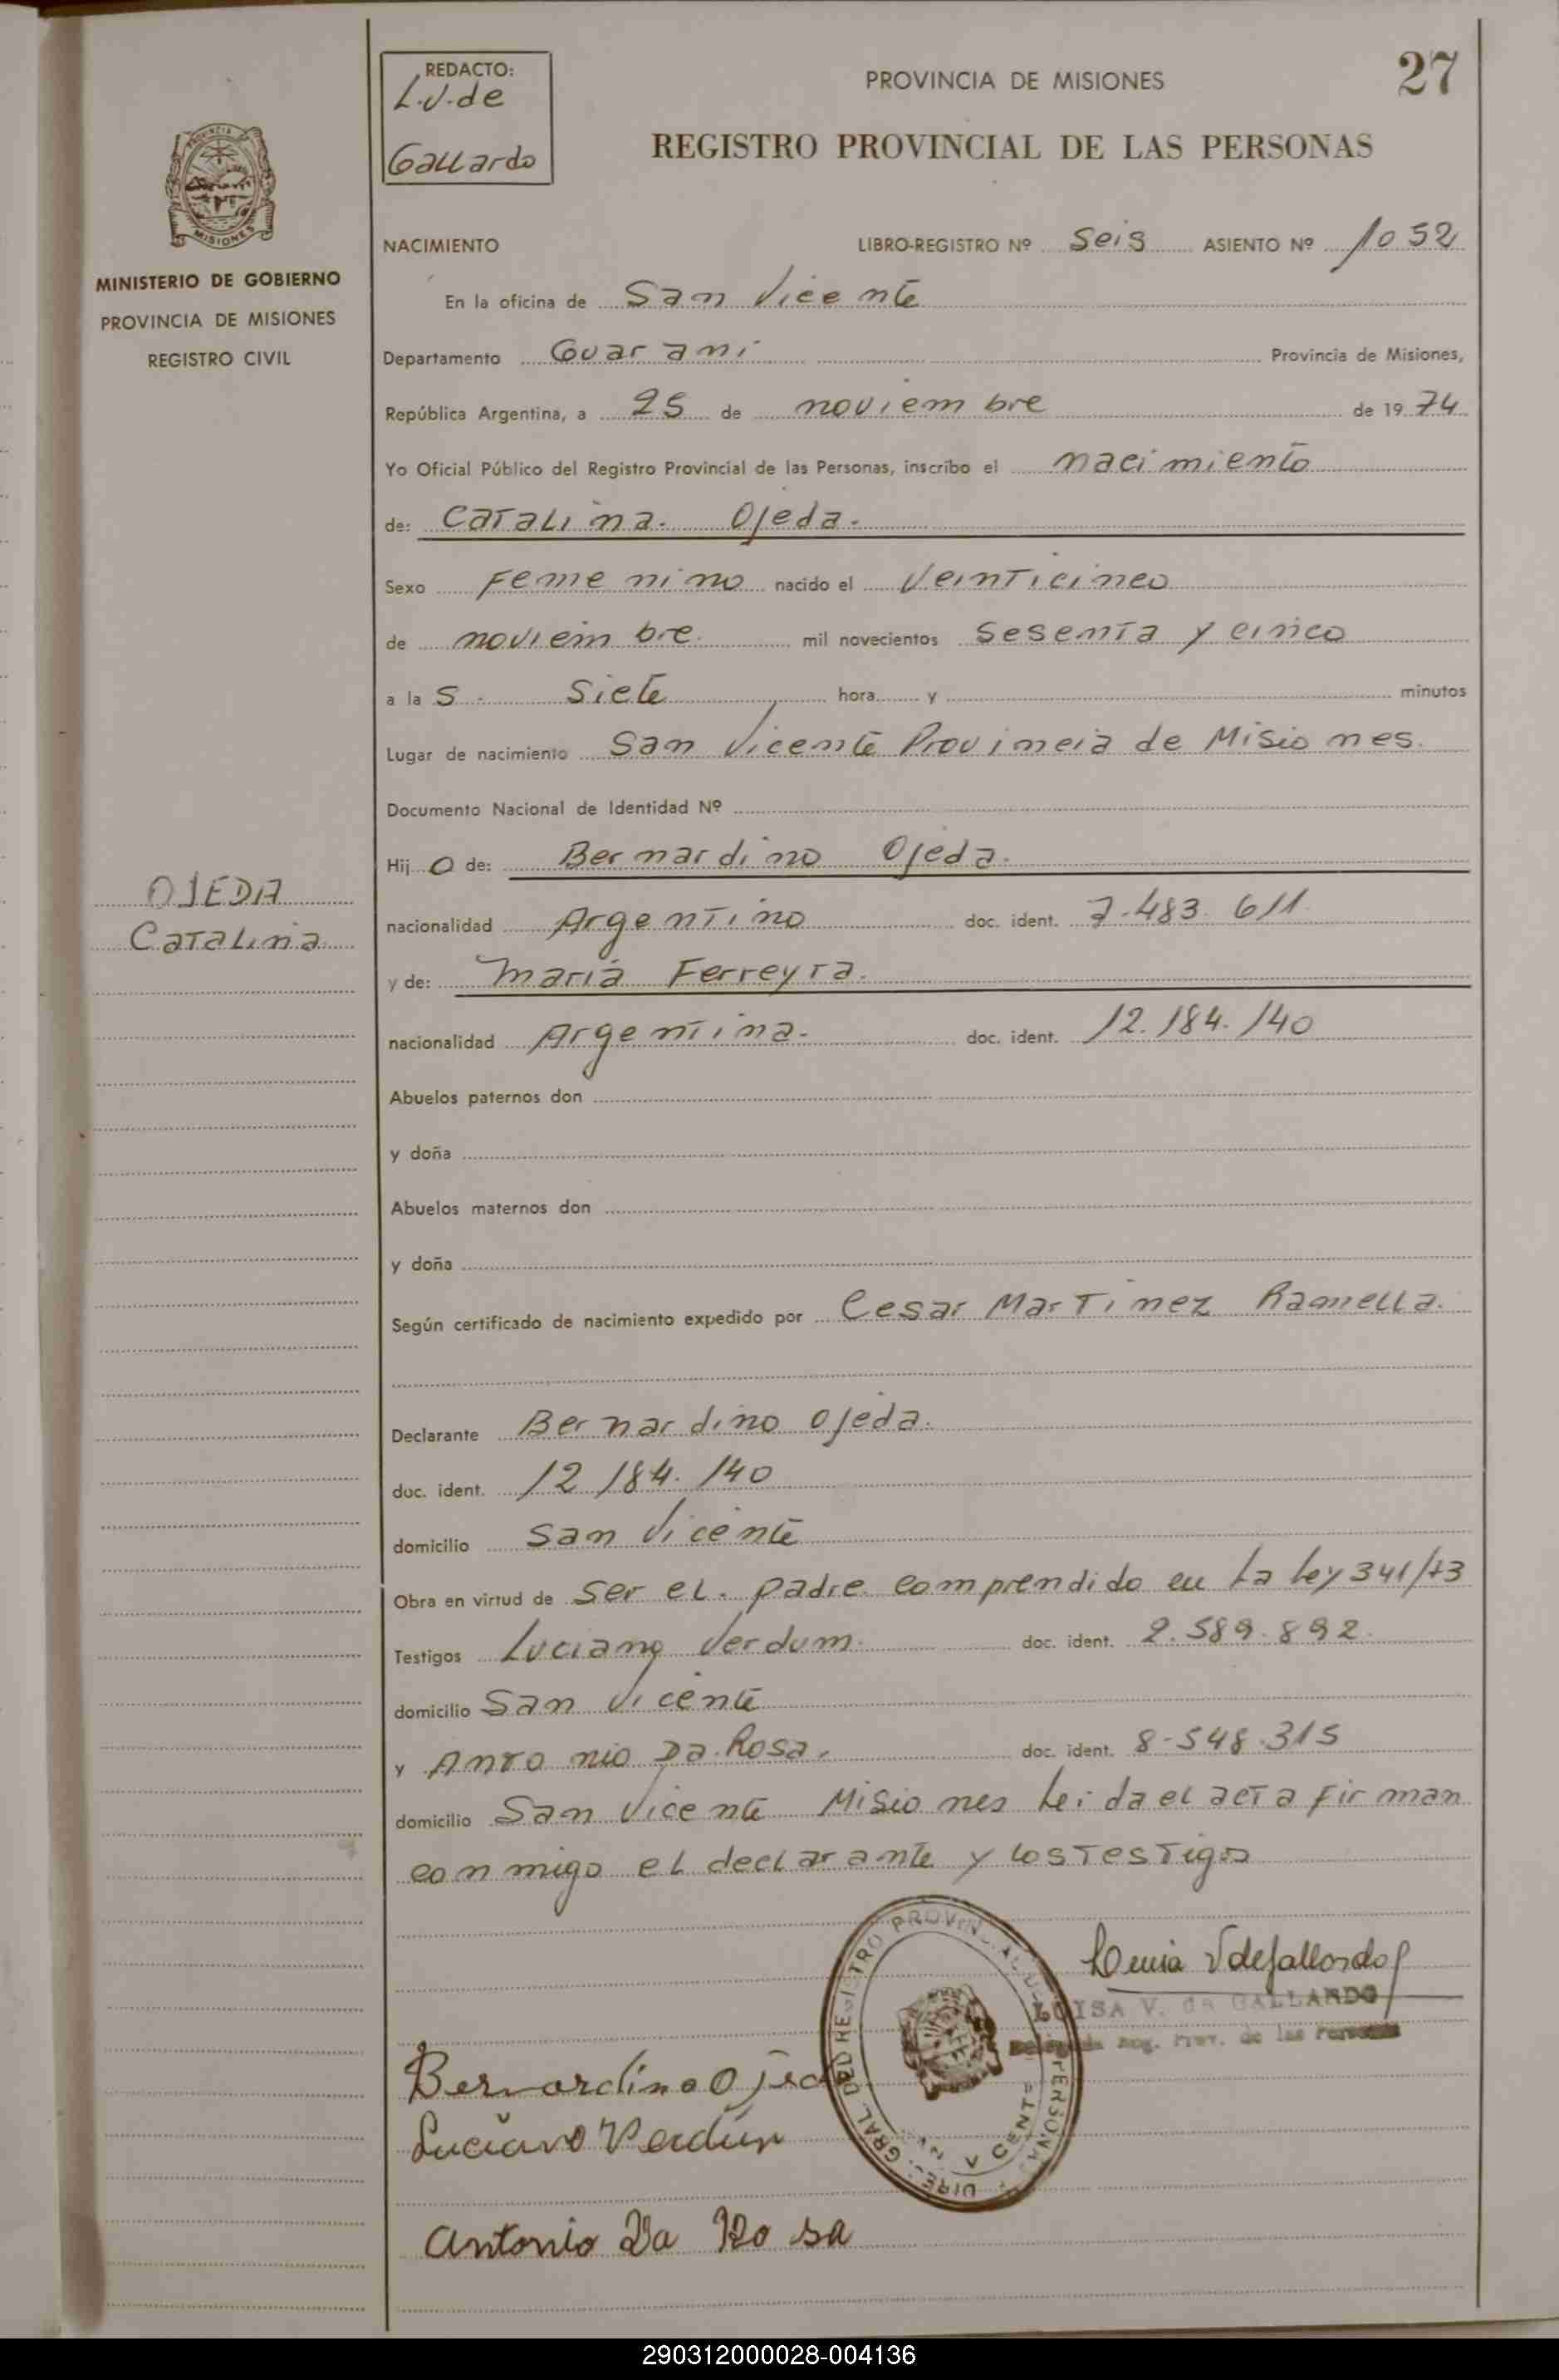 27
REDACTO:
L.V. de
Gallardo
PROVINCIA DE MISIONES
REGISTRO PROVINCIAL DE LAS PERSONAS
MISIONES
MINISTERIO DE GOBIERNO
PROVINCIA DE MISIONES
REGISTRO CIVIL
NACIMIENTO LIBRO-REGISTRO Nº Seis ASIENTO Nº 1052
En la oficina de San Vicente
Departamento Guarani Provincia de Misiones,
República Argentina, a 25 de noviembre de 1974
Yo Oficial Público del Registro Provincial de las Personas, inscribo el nacimiento
de: Catalina. Ojeda.
Sexo Femenino nacido el Veinticinco
de noviembre. mil novecientos Sesenta y cinco
a la s. Siete hora y minutos
Lugar de nacimiento San Vicente Provincia de Misiones.
Documento Nacional de Identidad Nº
Hij o de: Bernardino Ojeda.
OJEDA
Catalina
nacionalidad Argentino doc. ident. 7.483.611
y de: Maria Ferreyra.
nacionalidad Argentina. doc. ident. 12.184.140
Abuelos paternos don
y doña
Abuelos maternos don
y doña
Según certificado de nacimiento expedido por Cesar Martinez Ramella.
Declarante Bernardino Ojeda.
doc. ident. 12 184. 140
domicilio San Vicente
Obra en virtud de ser el. padre comprendido en la ley 341/73
Testigos Luciano Verdum. doc. ident. 2.589.892.
domicilio San Vicente
y Antonio Da. Rosa. doc. ident. 8-548.315
domicilio San Vicente Misiones Leida el acta firman
conmigo el declarante y los testigos
Luisa V de Gallardo
LUISA V. de GALLARDO
Reg. Prov. de las Personas
Bernardino Ojeda
Luciano Verdún
Antonio Da Rosa
290312000028-004136